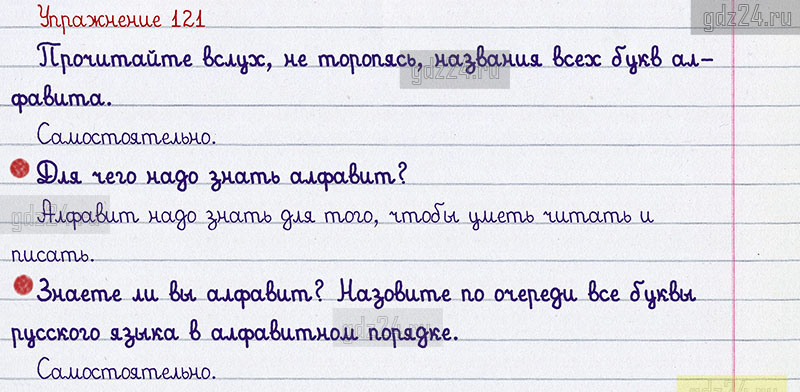 Упражнение 121
gdz24.ru
Прочитайте вслух, не торопясь, названия всех букв ал-
gdz24.ru
фавита.
Самостоятельно.
Для чего надо знать алфавит?
gdz24.ru
Алфавит надо знать для того, чтобы уметь читать и
писать.
Знаете ли вы алфавит? Назовите по очереди все буквы
русского языка в алфавитном порядке.
gdz24.ru
Самостоятельно.
gdz24.ru